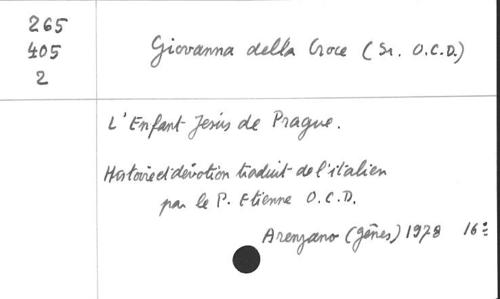 265
405
2
Giovanna della Croce (Sr. O.C.D.)
L'Enfant Jésus de Prague.
Histoire et dévotion traduit de l'italien
par le P. Etienne O.C.D.
Arenzano (Gênes) 1978 16°